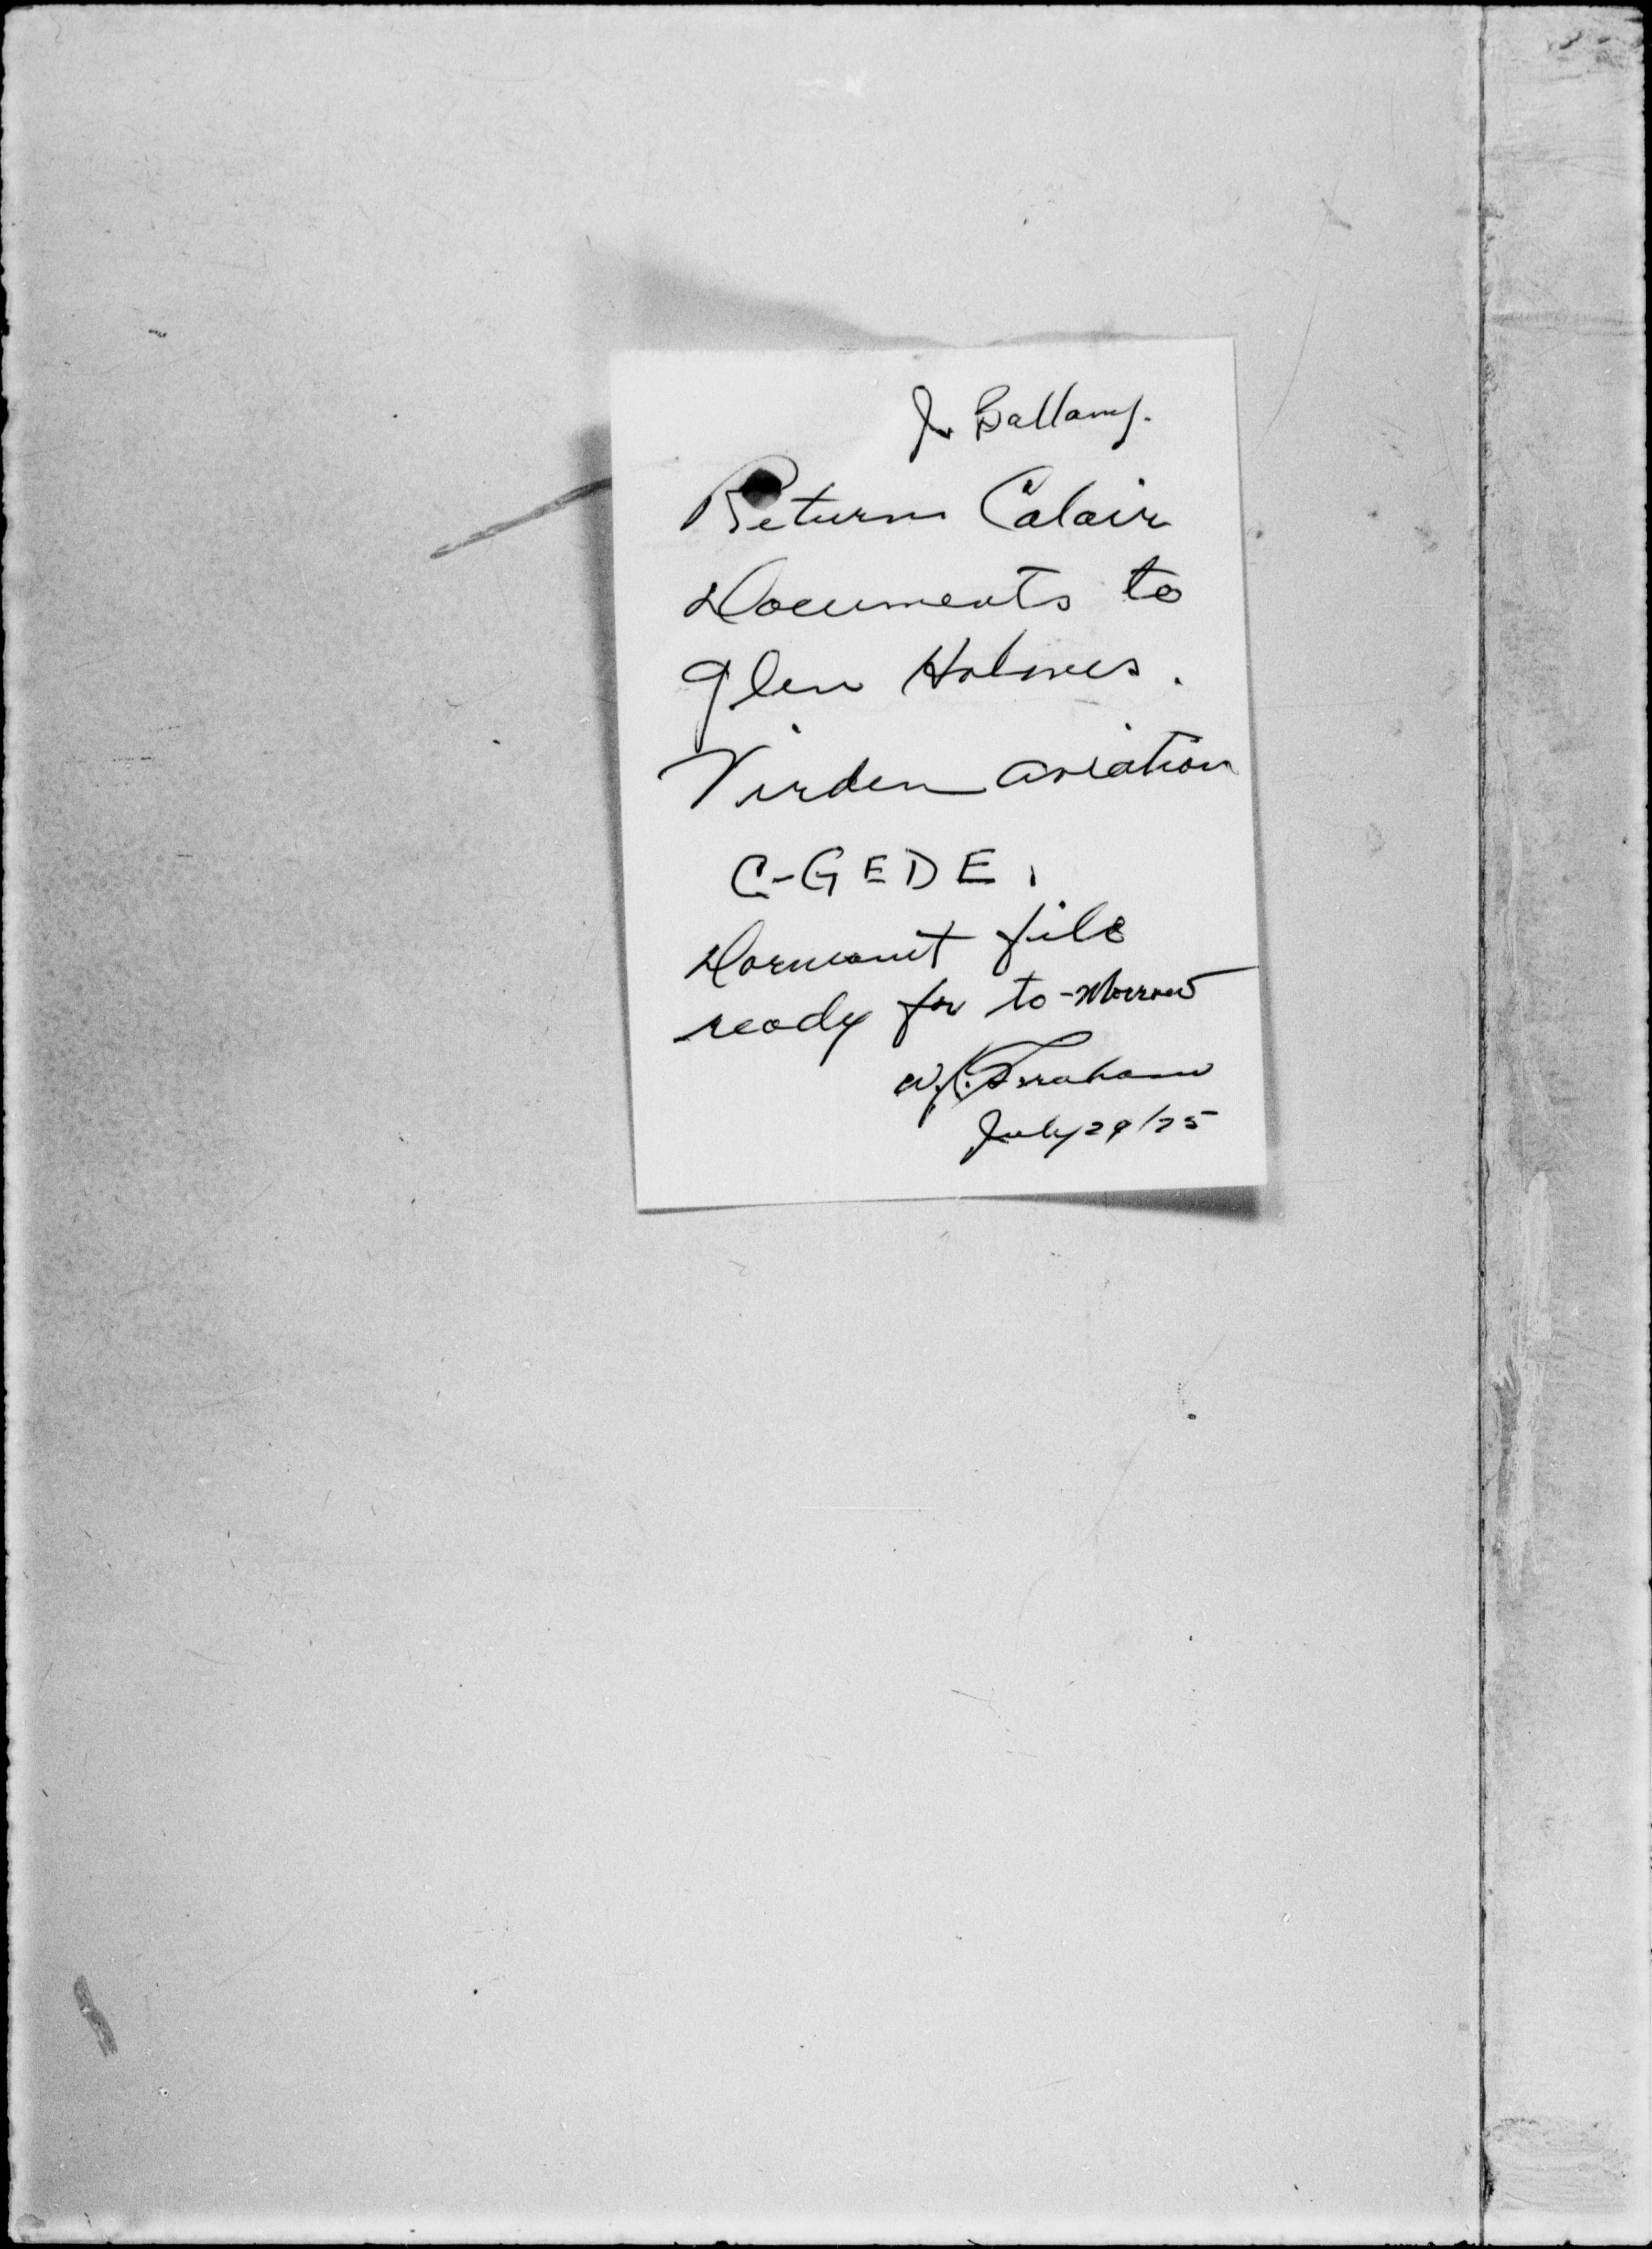 J. Ballamy.
Return Calair
Documents to
Glen Holmes.
Virden aviation
C-GEDE.
Dormant file
ready for to-morrow
July 29/75